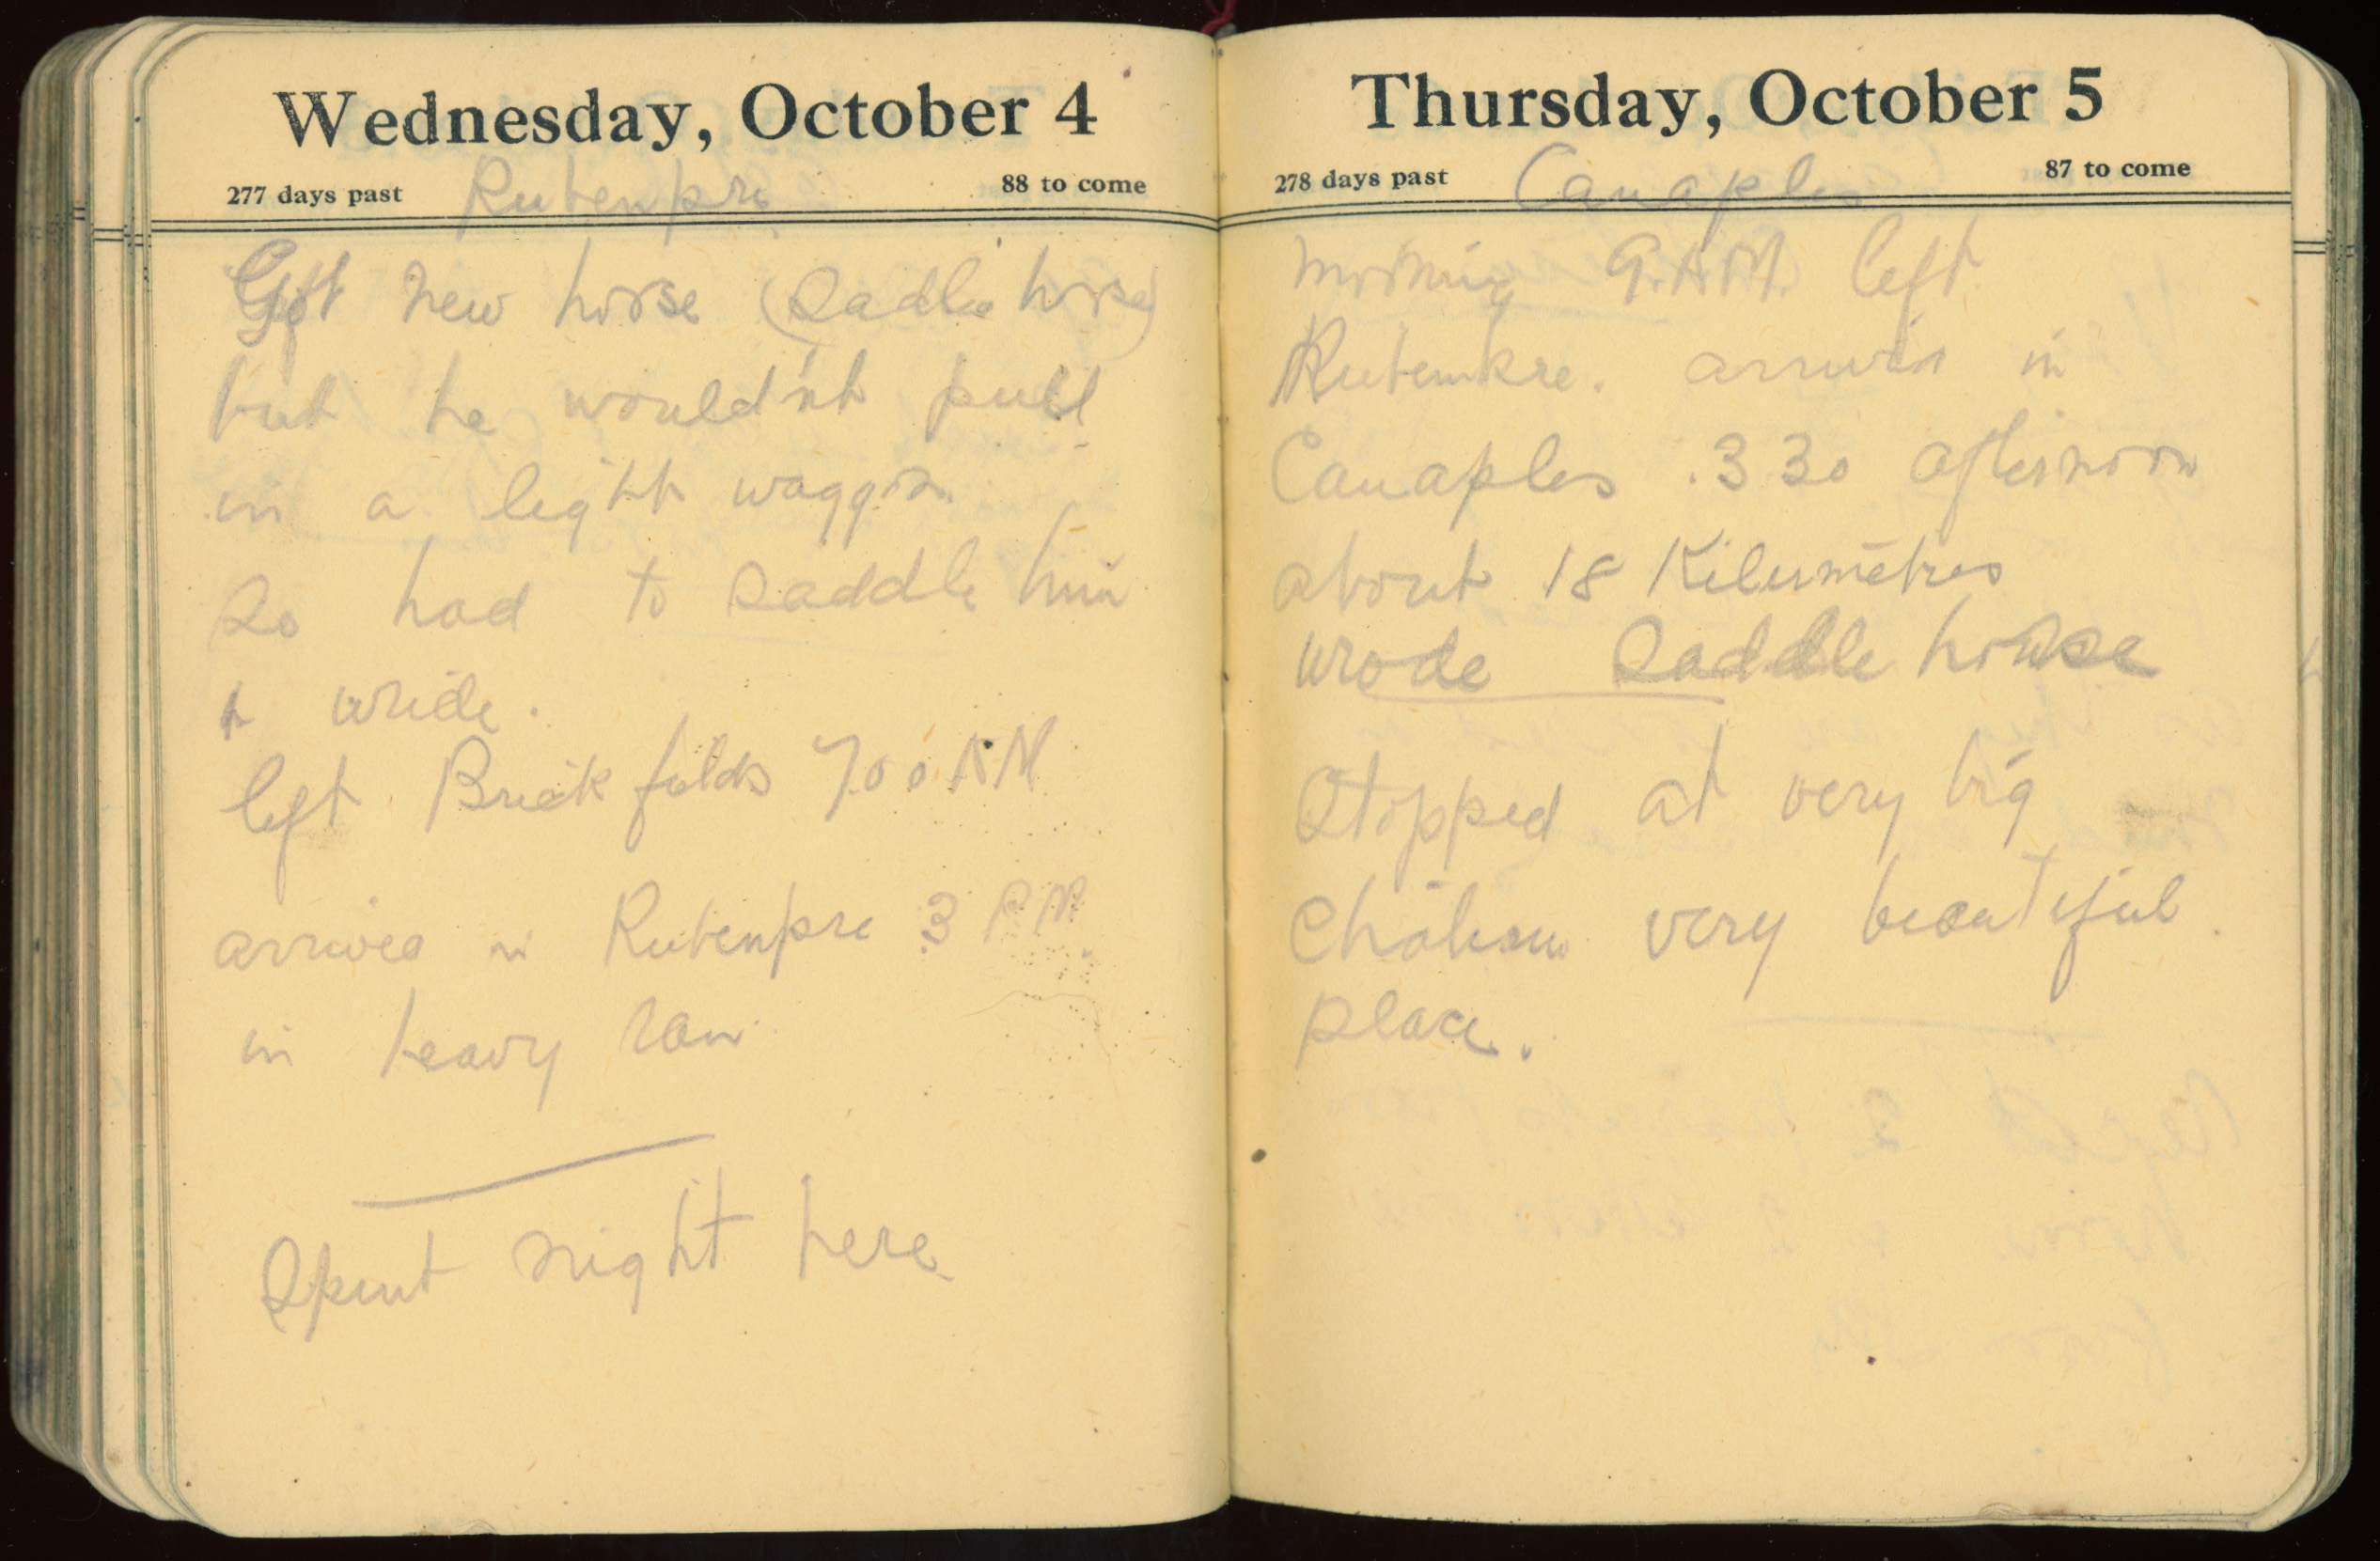 Wednesday, October 4
277 days past Rubenpre 88 to come
Got new horse (Saddle horse)
but he wouldn't pull
in a light waggon.
So had to saddle him
& wride.
left Brickfields 7.00 AM
arrived in Rubenpre 3 P.M.
in heavy rain
Spent night here
Thursday, October 5
278 days past Canaples 87 to come
Morning 9.AM. left
Rubempre. arrived in
Canaples .330 afternoon
about 18 Kilometres
wrode Saddle horse
Stopped at very big
Chateau very beautiful.
place.